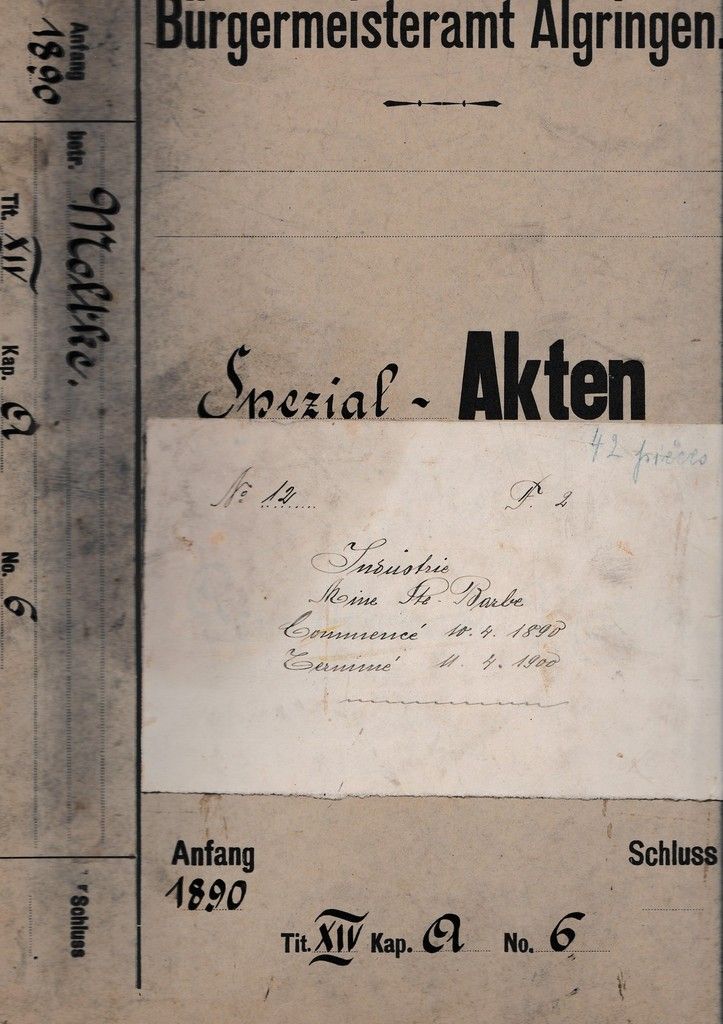 Bürgermeisteramt Algringen.
Spezial - Akten
42 pièces
No 12 F. 2
Industrie
Mine Ste- Barbe
Commencé 10. 4. 1890
Terminé 11. 4. 1900
Anfang
Schluss
1890
Tit. XIV Kap. A No. 6
Anfang
1890
betr. Moltke.
Tit. XIV Kap. A No. 6
Schluss